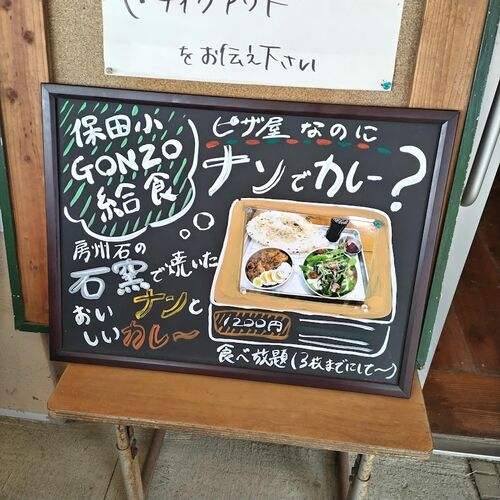 ・テイクアウト
をお伝え下さい
保田小
GONZO
給食
ピザ屋なのに
ナンでカレー?
房州石の
石窯で焼いた
ナンと
おいしいカレ〜
1200円
食べ放題(3枚までにして〜)